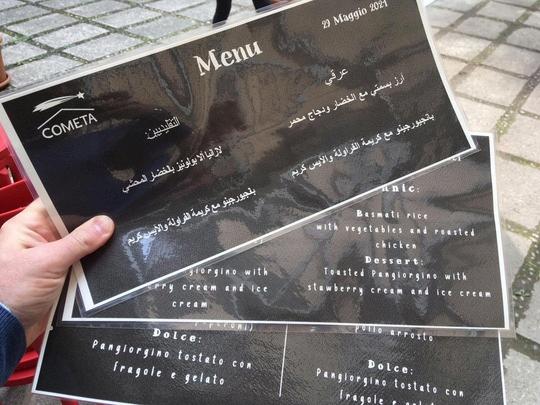 Menu
27 Maggio 2021
COMETA
عرقي
أرز بسمتي مع الخضار ودجاج محمر
بانجيورجينو مع كريمة الفراولة والآيس كريم
التقليديين
لازانيا ألا بولونيز بالخضار المحمصي
بانجيورجينو مع كريمة الفراولة والآيس كريم
nic:
Basmati rice
with vegetables and roasted
chicken
Dessert:
Toasted Pangiorgino with
stawberry cream and ice cream
giorgino with
erry cream and ice
cream
Dolce:
Pangiorgino tostato con
fragole e gelato
pollo arrosto
Dolce:
Pangiorgino tostato con
fragole e gelato